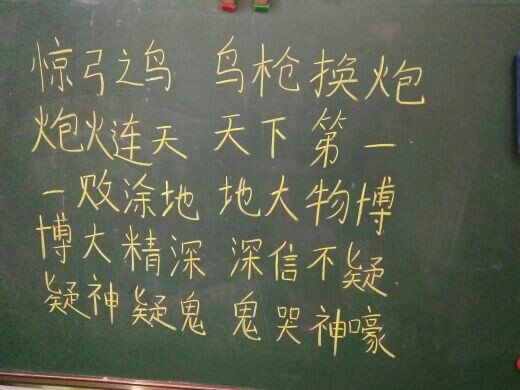 惊弓之鸟 鸟枪换炮
炮火连天 天下第一
一败涂地 地大物博
博大精深 深信不疑
疑神疑鬼 鬼哭神嚎